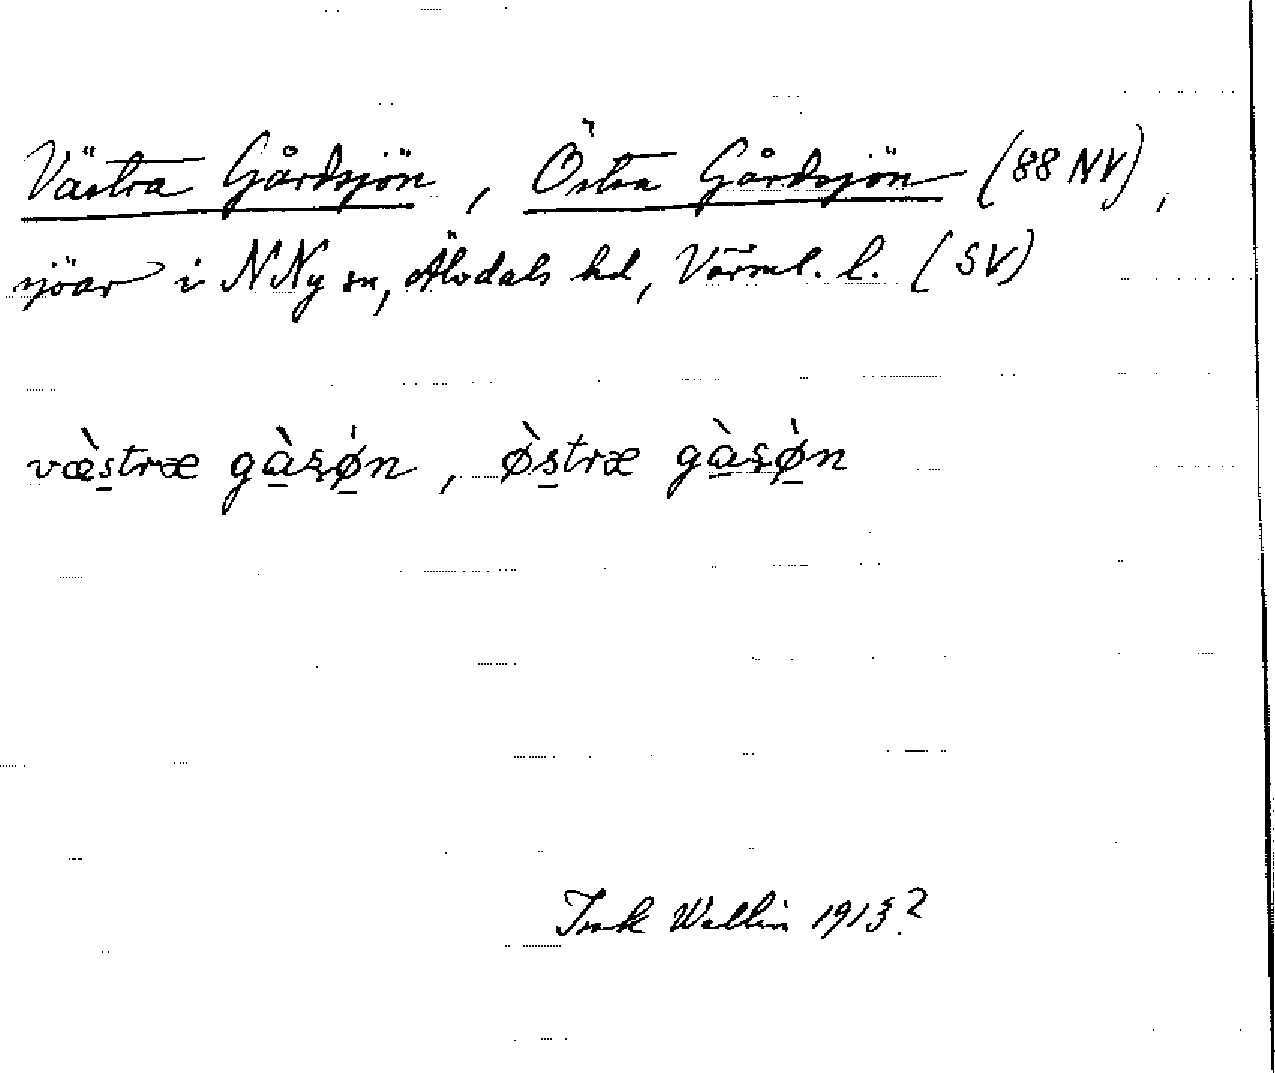 Västra Gårdsjön, Östra Gårdsjön (88 NV),
sjöar i N Ny sn, Älvdals hd, Värml. l. (SV)
væ̀s̲træ gà̲sø̲̀n, ø̀s̲træ gà̲sø̲̀n
Isak Wallin 1913?